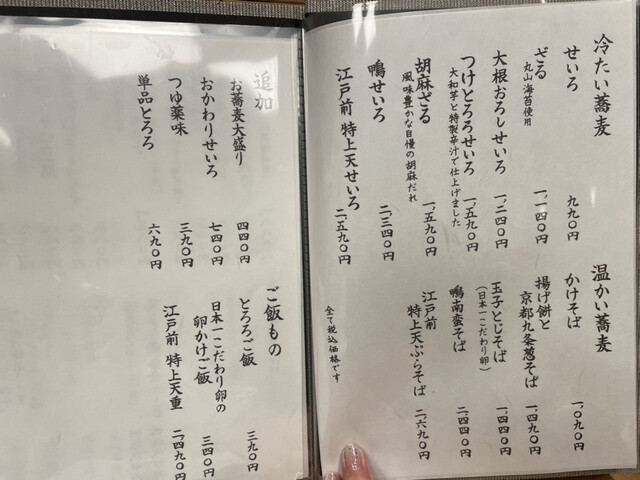 冷たい蕎麦
せいろ 九九〇円
ざる 一、一四〇円
丸山海苔使用
大根おろしせいろ 一、二四〇円
つけとろろせいろ 一、五九〇円
大和芋と特製辛汁で仕上げました
胡麻ざる 一、五九〇円
風味豊かな自慢の胡麻だれ
鴨せいろ 二、三四〇円
江戸前 特上天せいろ 二、五九〇円
温かい蕎麦
かけそば 一、〇九〇円
揚げ餅と
京都九条葱そば 一、四九〇円
玉子とじそば 一、四四〇円
（日本一こだわり卵）
鴨南蛮そば 二、四四〇円
江戸前
特上天ぷらそば 二、六九〇円
全て税込価格です
追加
お蕎麦大盛り 四四〇円
おかわりせいろ 七四〇円
つゆ薬味 三九〇円
単品とろろ 六九〇円
ご飯もの
とろろご飯 三九〇円
日本一こだわり卵の
卵かけご飯 三四〇円
江戸前 特上天重 二、四九〇円